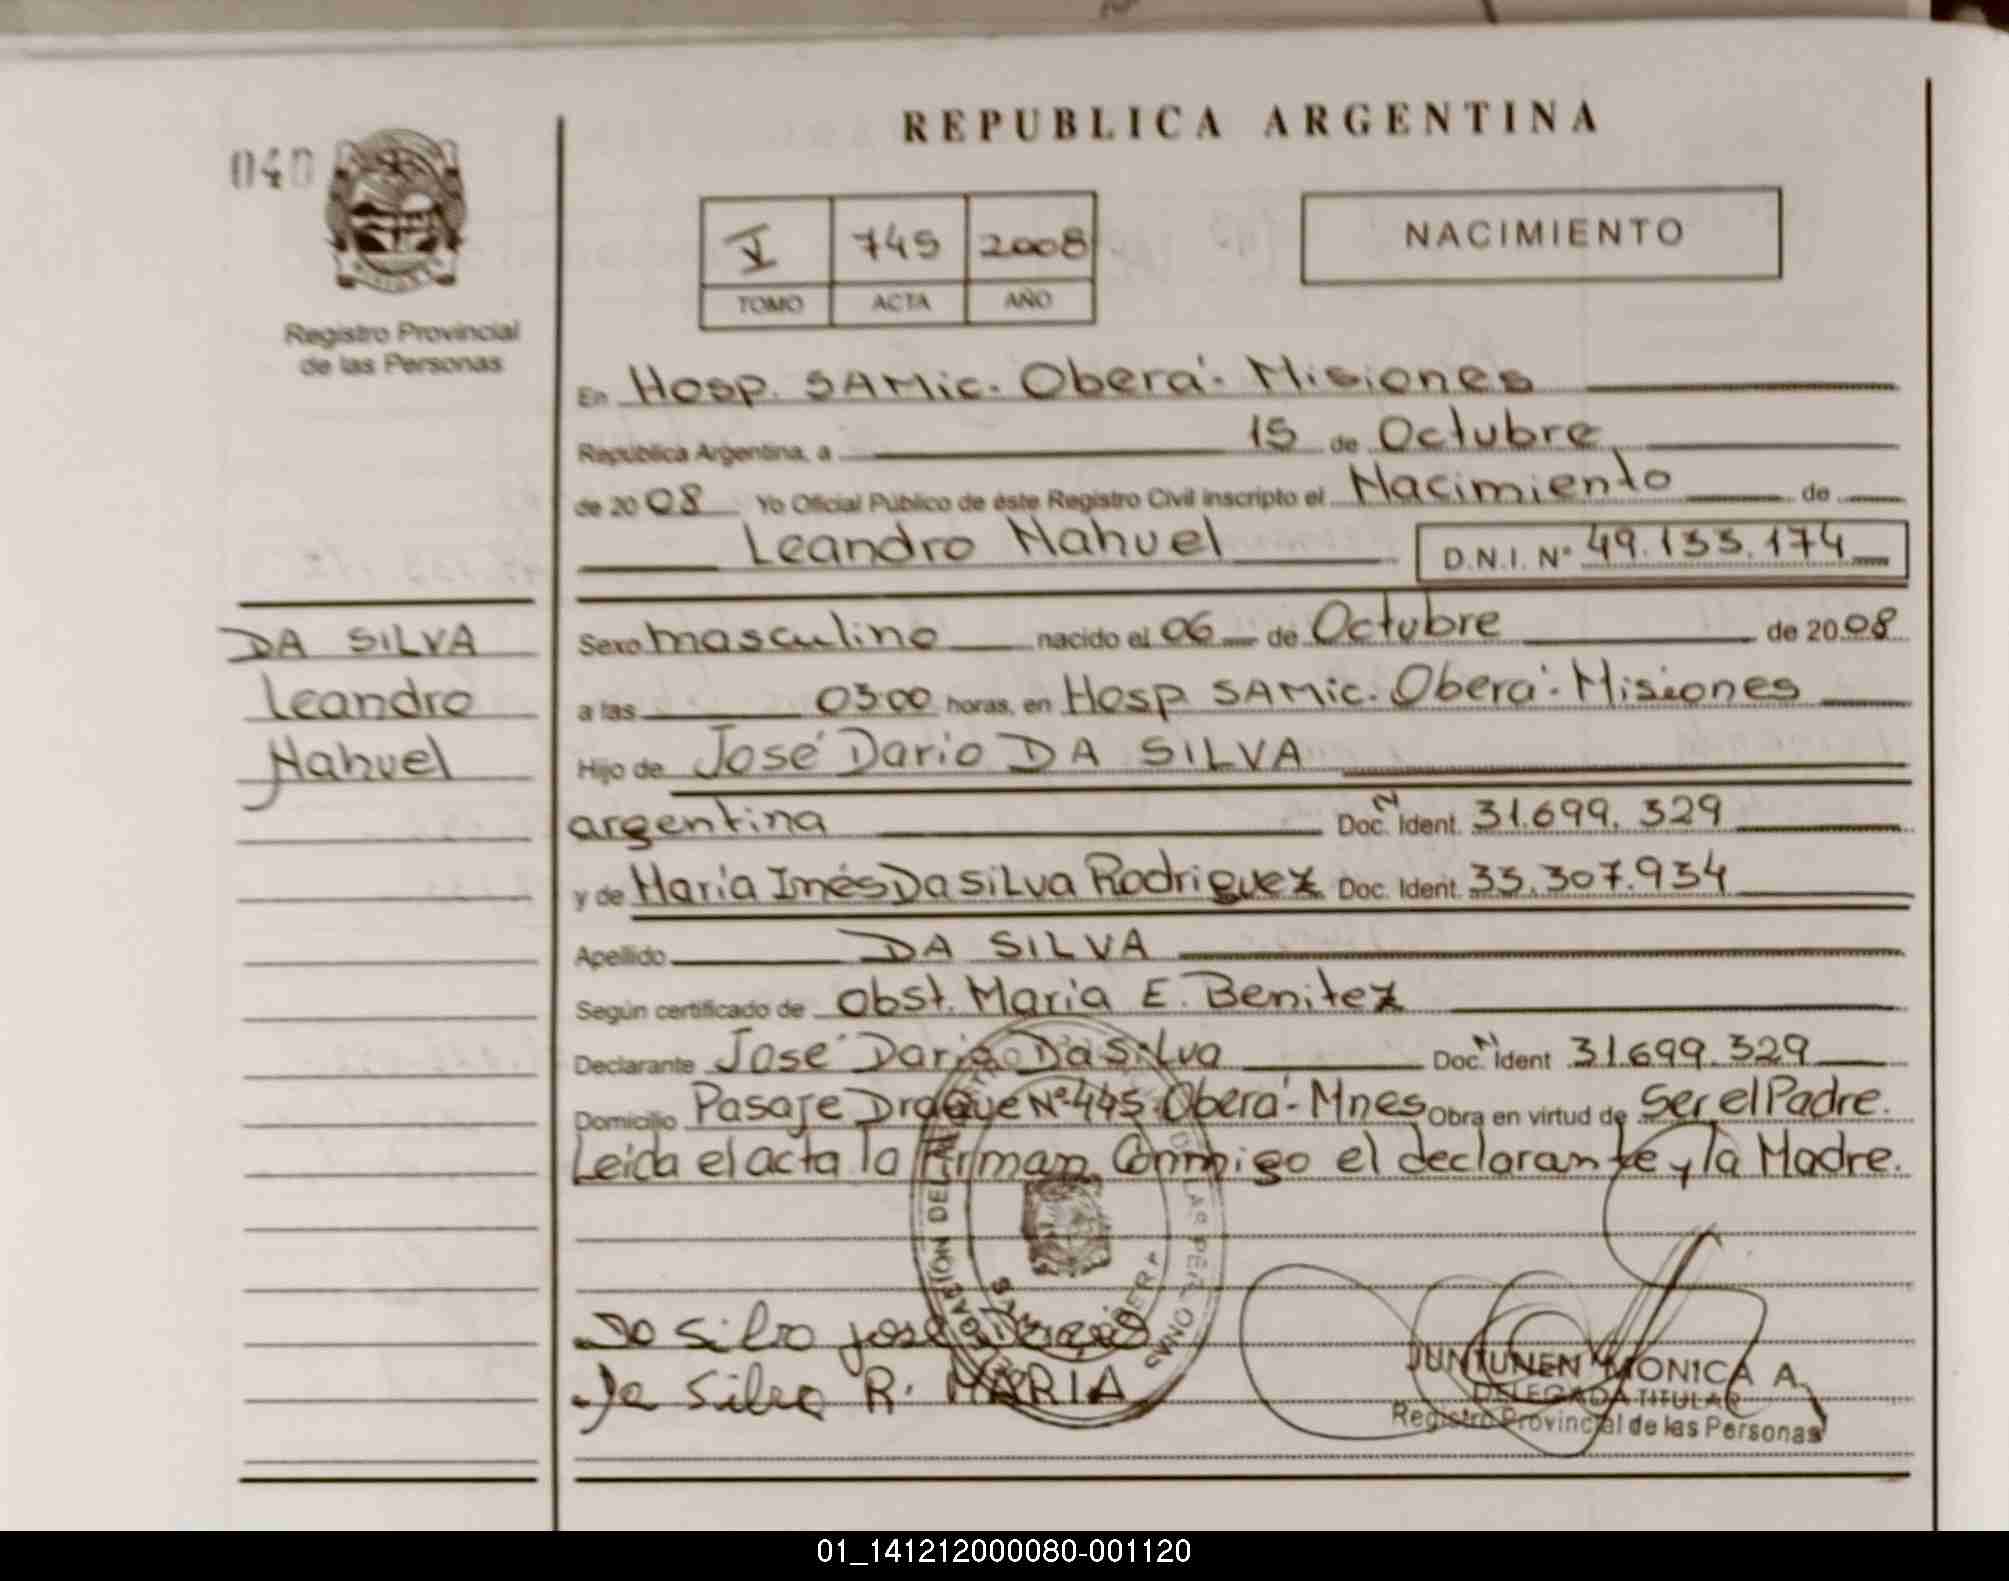 REPUBLICA ARGENTINA
040
Registro Provincial
de las Personas
V 745 2008
TOMO ACTA AÑO
NACIMIENTO
En Hosp. SAMic. Oberá. Misiones
República Argentina, a 15 de Octubre
de 2008 Yo Oficial Público de éste Registro Civil inscripto el Nacimiento de
Leandro Nahuel D.N.I. Nº 49.133.174
DA SILVA
Leandro
Nahuel
Sexo masculino nacido el 06 de Octubre de 2008
a las 03:00 horas, en Hosp SAMic. Oberá. Misiones
Hijo de José Dario DA SILVA
argentina Doc. Ident. 31.699.329
y de Maria Inés Da Silva Rodriguez Doc. Ident. 33.307.934
Apellido DA SILVA
Según certificado de Obst. Maria E. Benitez
Declarante José Dario Da Silva Doc. Ident 31.699.329
Domicilio Pasaje Drague Nº 445. Oberá - Mnes Obra en virtud de Ser el Padre.
Leida el acta la Firman Conmigo el declarante y la Madre.
Da Silva José Dario
Da Silva R. MARIA
JUNTUNEN MONICA A.
DELEGADA TITULAR
Registro Provincial de las Personas
01_141212000080-001120